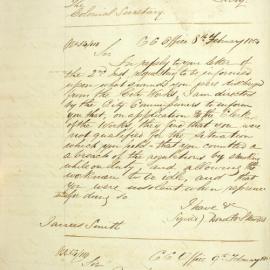 The
Colonial Secretary
C C Office 8th February 1854
Sir
In reply to your letter of
the 2nd Inst, requesting to be informed
upon what grounds you were discharged
from the City Works, I am directed
by the City Commissioners to inform
you that, on application to the Clerk
of the Works, they find that you were
not qualified for the situation
which you held - that you committed a
a breach of the regulations by smoking
while on duty, and allowing the
workmen to be idle, and that
you were insolent when reprimanded
for doing so
I have &c
(signed)
James Smith
C. C. Office 9th February
Sir